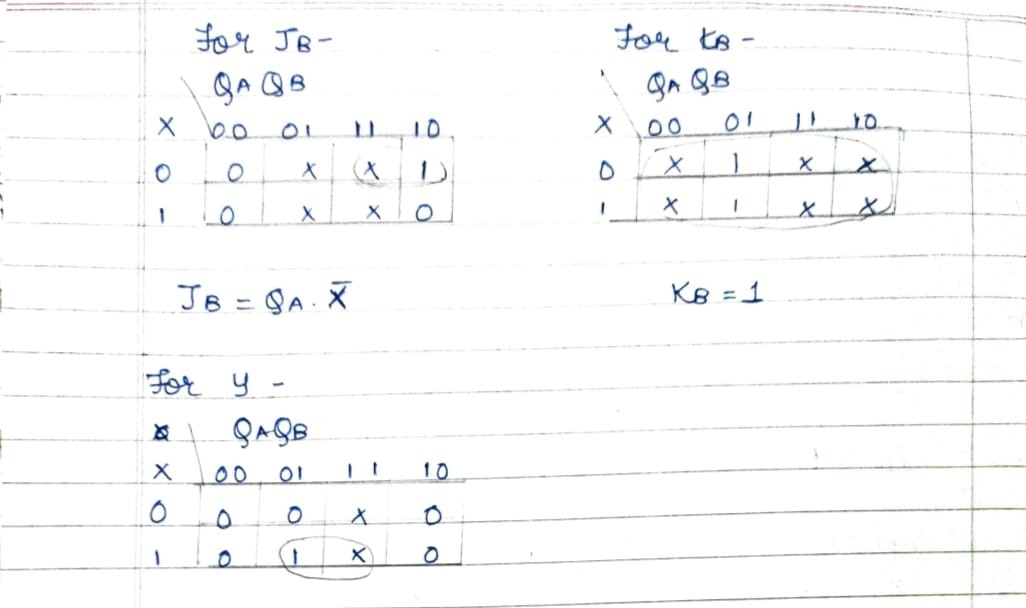 For JB -
QA QB
X 00 01 11 10
0 0 x x 1
1 0 x x 0
JB = QA . X̄
For KB -
QA QB
X 00 01 11 10
0 x 1 x x
1 x 1 x x
KB = 1
For y -
QAQB
X 00 01 11 10
0 0 0 x 0
1 0 1 x 0